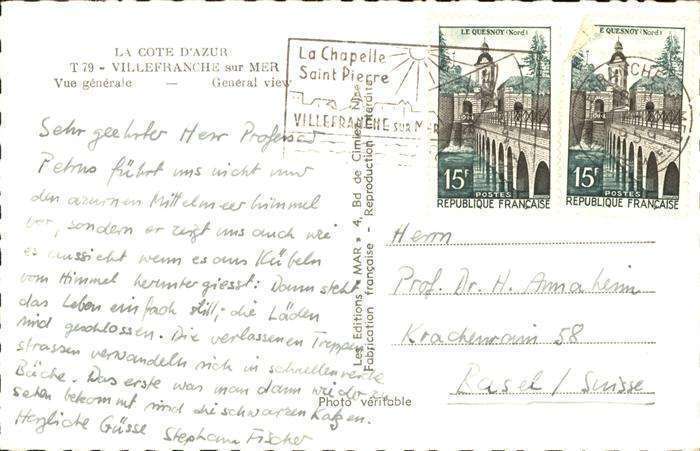 LA COTE D'AZUR
T 79 - VILLEFRANCHE sur MER
Vue générale — General view
La Chapelle
Saint Pierre
VILLEFRANCHE SUR MER
LE QUESNOY (Nord)
15F
POSTES
REPUBLIQUE FRANÇAISE
E QUESNOY (Nord)
15F
POSTES
REPUBLIQUE FRANÇAISE
Sehr geehrter Herr Professor
Petrus führt uns nicht nur
den azurnen Mittelmeerhimmel
vor, sondern er zeigt uns auch wie
es aussieht wenn es aus Kübeln
vom Himmel heruntergiesst: Dann steht
das Leben einfach still; die Läden
sind geschlossen. Die verlassenen Treppen
strassen verwandeln sich in schnellen
Bäche. Das erste was man dann wieder zu
sehen bekommt sind die schwarzen Katzen.
Herzliche Grüsse Stephanie Fischer
Les Editions "MAR" 4, Bd de Cimiez, Nice
Fabrication française - Reproduction interdite
Photo véritable
Herrn
Prof. Dr. H. Annaheim
Krachenrain 58
Basel / Suisse